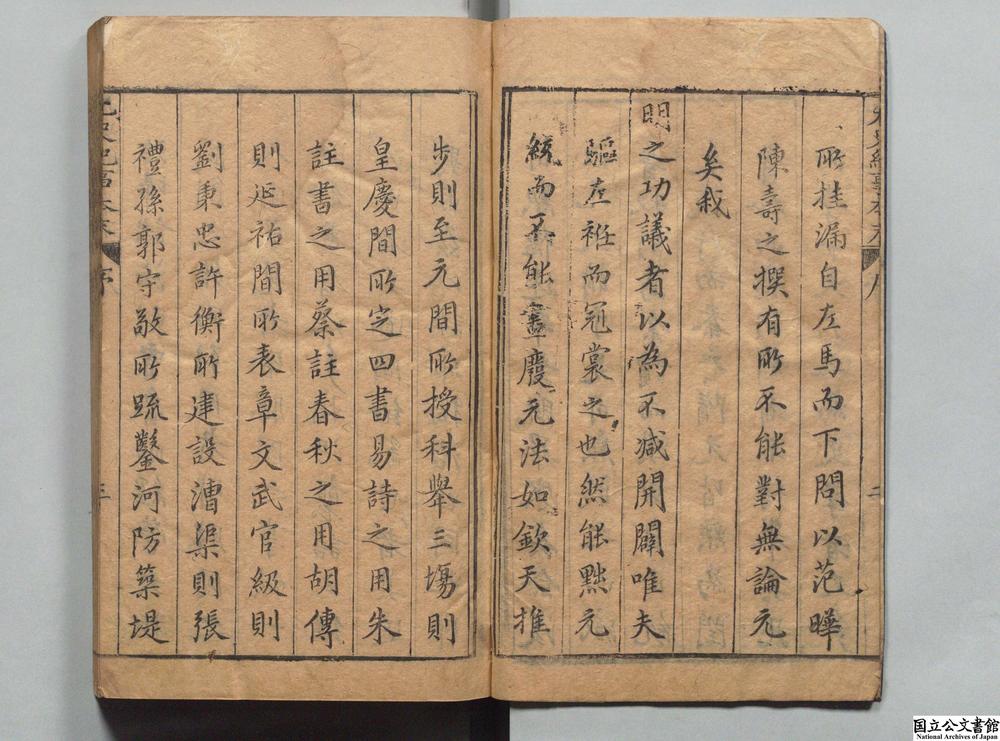 所挂漏自左馬而下問以范曄
陳壽之撰有所不能對無論元
矣我
明之功議者以為不减開闢唯夫
驅左袵而冠裳之也然能黜元
統而不能盡廢元法如欽天推
步則至元間所授科舉三塲則
皇慶間所定四書易詩之用朱
註書之用蔡註春秋之用胡傳
則延祐間所表章文武官級則
劉秉忠許衡所建設漕渠則張
禮孫郭守敬所疏鑿河防築堤
元史紀事本末 序
國立公文書館
National Archives of Japan